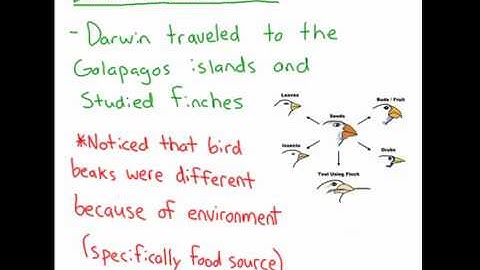 - Darwin traveled to the
Galapagos islands and
Studied finches
*Noticed that bird
beaks were different
because of environment
(specifically food source)
Leaves
Seeds
Buds / Fruit
Insects
Grubs
Tool Using Finch